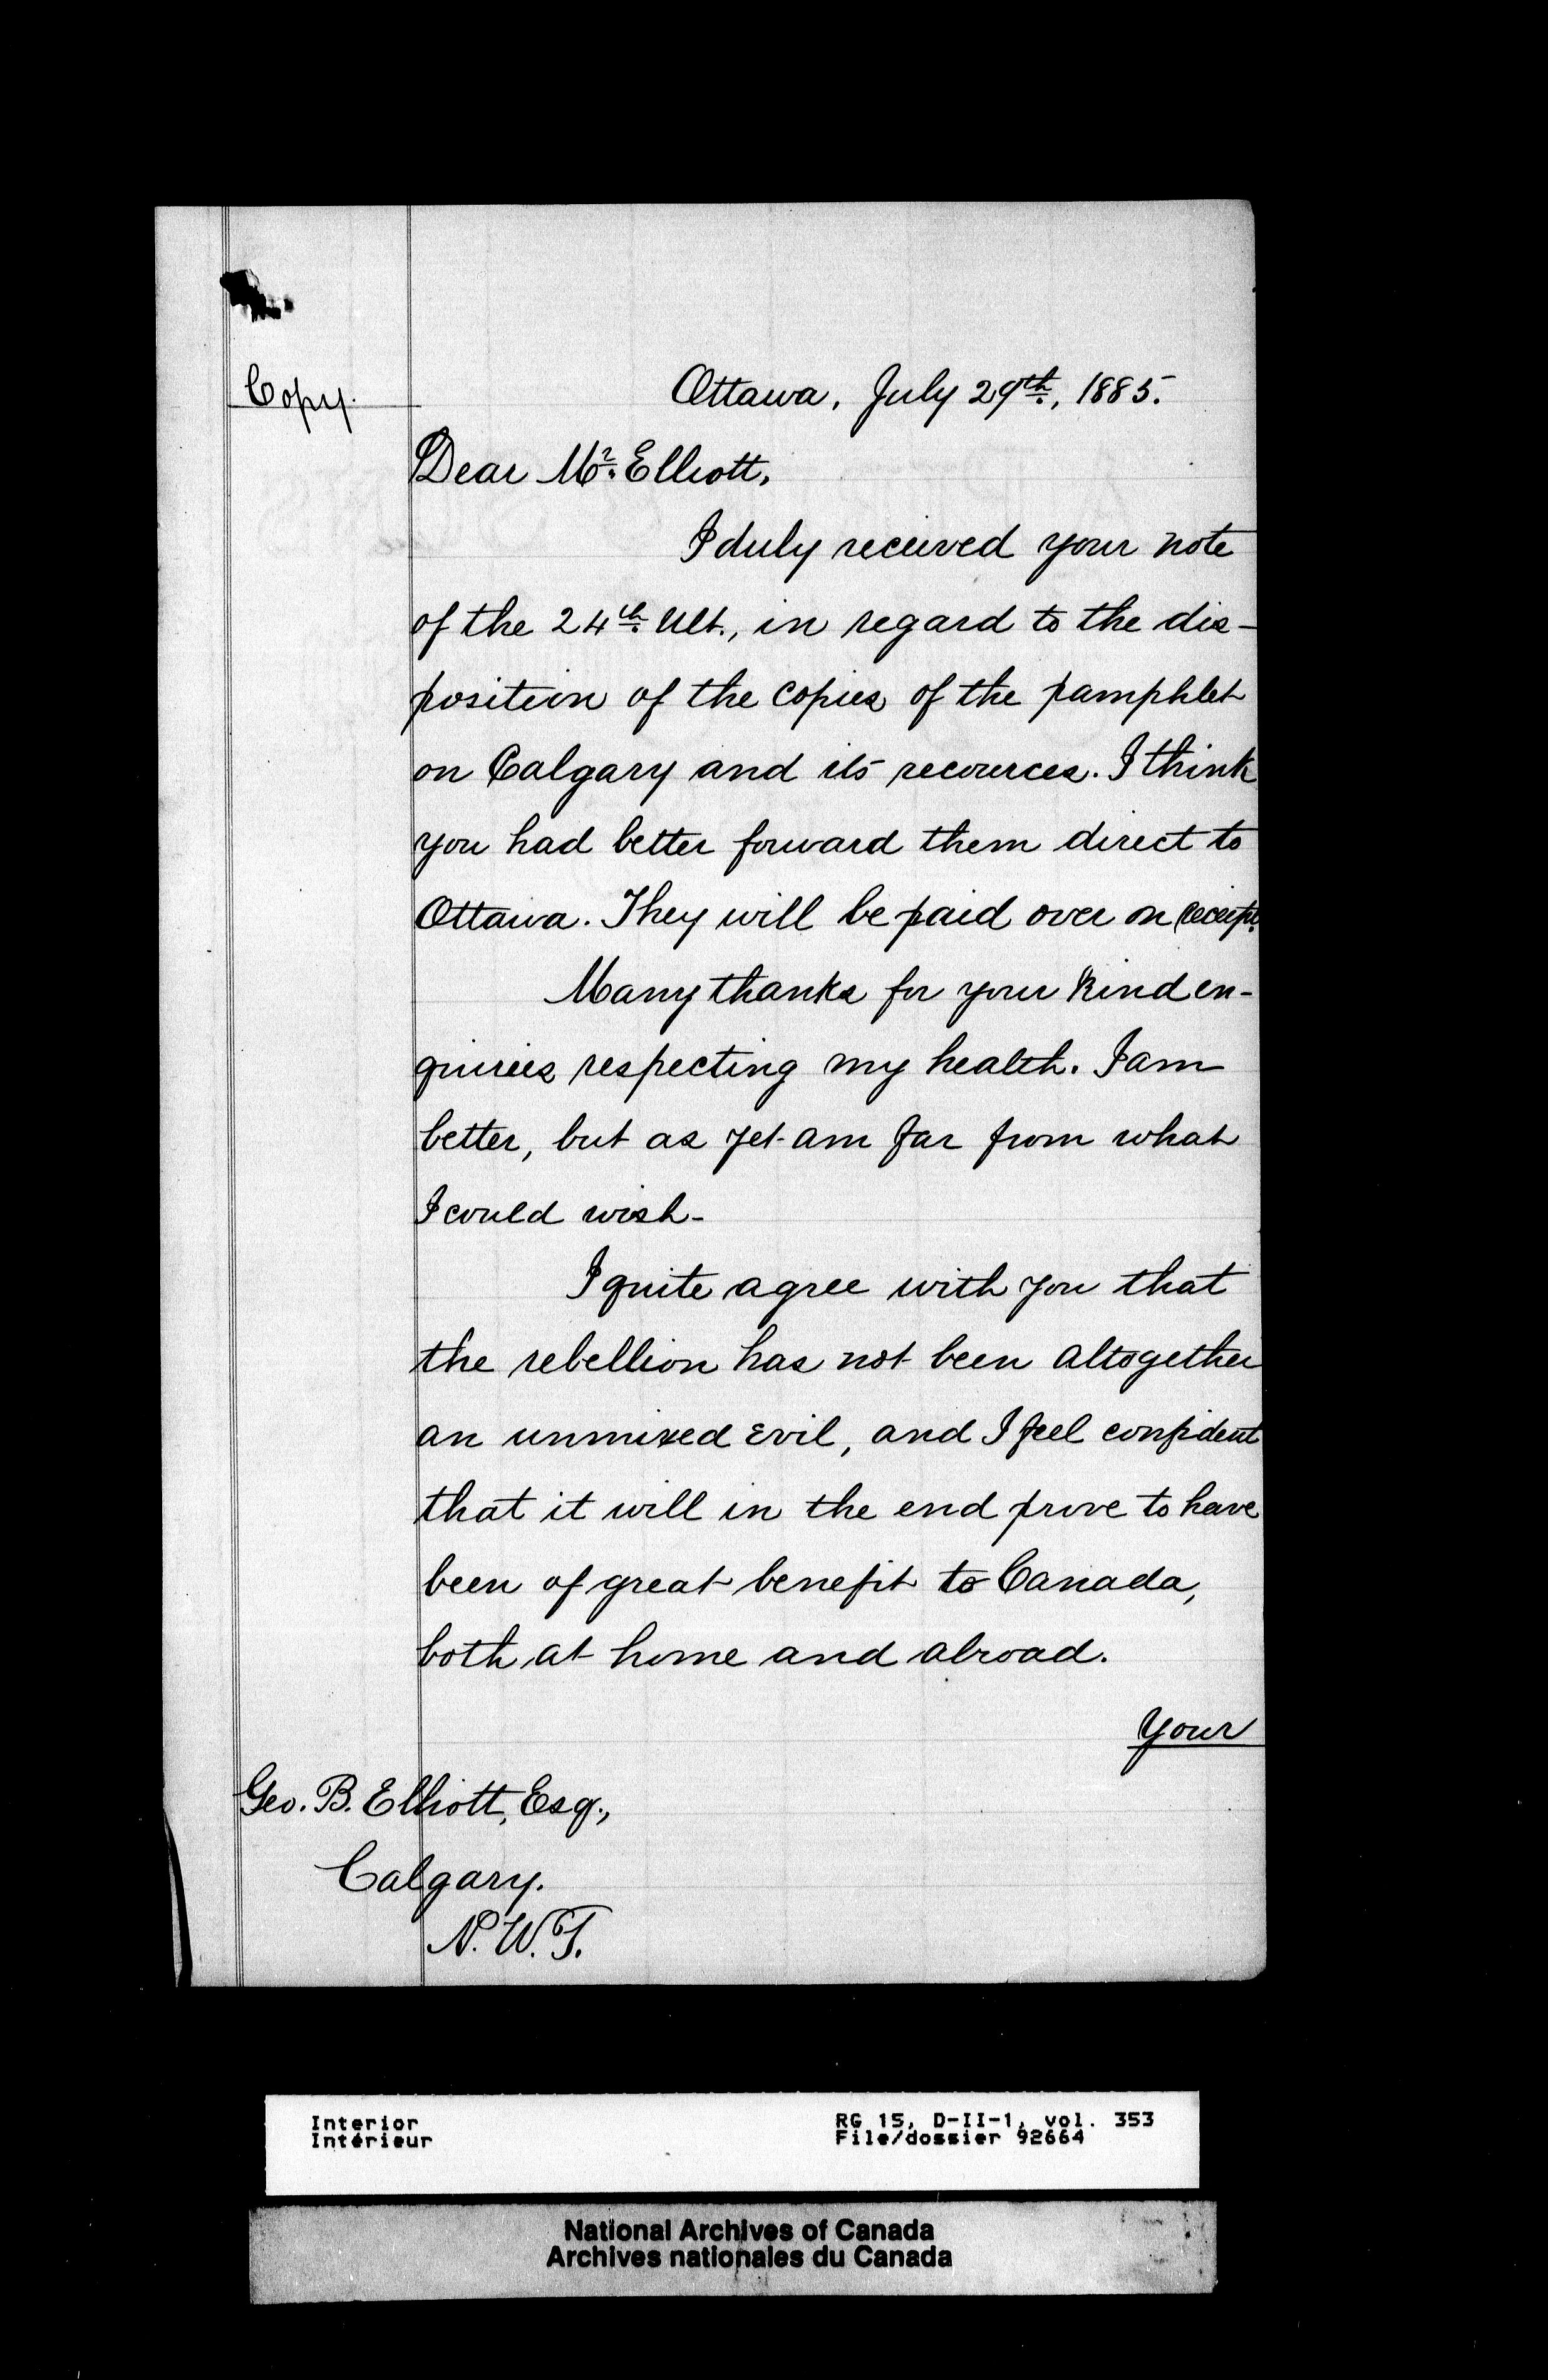 Copy.
Ottawa, July 29th, 1885.
Dear Mr. Elliott,
I duly received your note
of the 24th Ult., in regard to the dis-
position of the copies of the pamphlet
on Calgary and its recources. I think
you had better forward them direct to
Ottawa. They will be paid over on receipt.
Many thanks for your kind en-
quiries respecting my health. I am
better, but as yet am far from what
I could wish-
I quite agree with you that
the rebellion has not been altogether
an unmixed evil, and I feel confident
that it will in the end prove to have
been of great benefit to Canada,
both at home and abroad.
Your
Geo. B. Elliott, Esq.,
Calgary.
N.W.T.
Interior
Intérieur
RG 15, D-II-1, vol. 353
File/dossier 92664
National Archives of Canada
Archives nationales du Canada